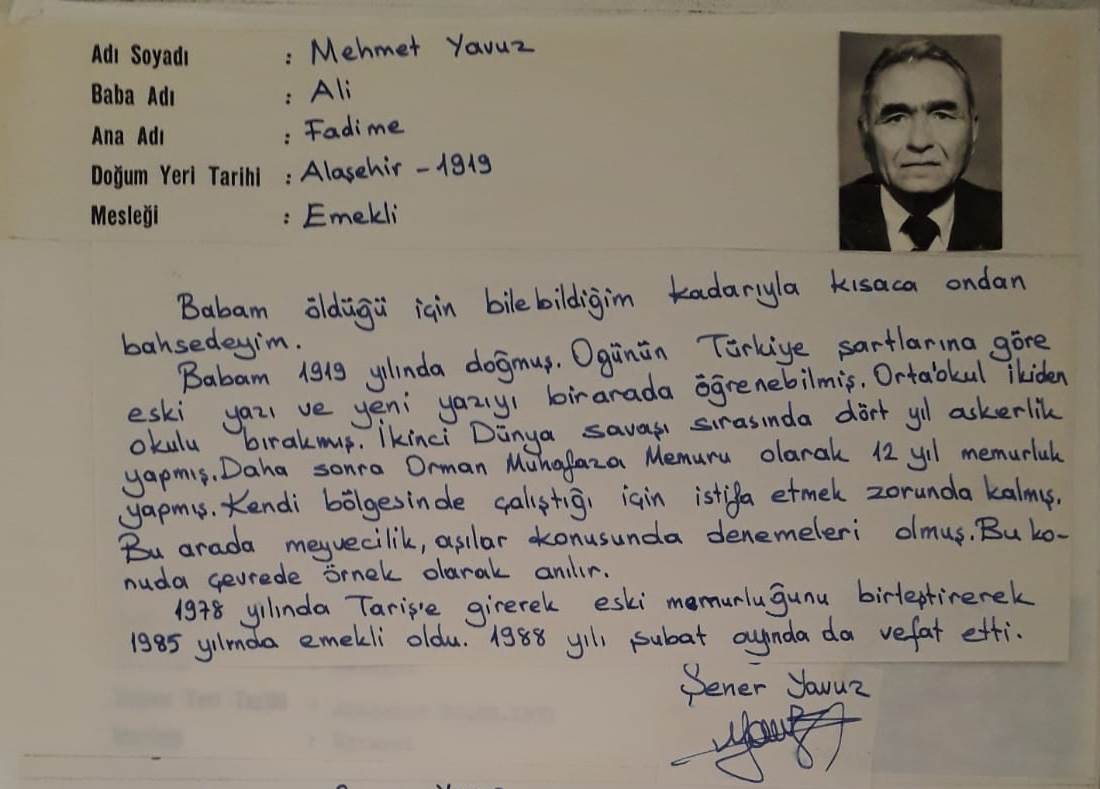 Adı Soyadı : Mehmet Yavuz
Baba Adı : Ali
Ana Adı : Fadime
Doğum Yeri Tarihi : Alaşehir - 1919
Mesleği : Emekli
Babam öldüğü için bilebildiğim kadarıyla kısaca ondan
bahsedeyim.
Babam 1919 yılında doğmuş. Ogünün Türkiye şartlarına göre
eski yazı ve yeni yazıyı birarada öğrenebilmiş. Orta'okul ikiden
okulu bırakmış. İkinci Dünya savaşı sırasında dört yıl askerlik
yapmış. Daha sonra Orman Muhafaza Memuru olarak 12 yıl memurluk
yapmış. Kendi bölgesinde çalıştığı için istifa etmek zorunda kalmış.
Bu arada meyvecilik, aşılar konusunda denemeleri olmuş. Bu ko-
nuda çevrede örnek olarak anılır.
1978 yılında Tariş'e girerek eski memurluğunu birleştirerek
1985 yılında emekli oldu. 1988 yılı şubat ayında da vefat etti.
Şener Yavuz